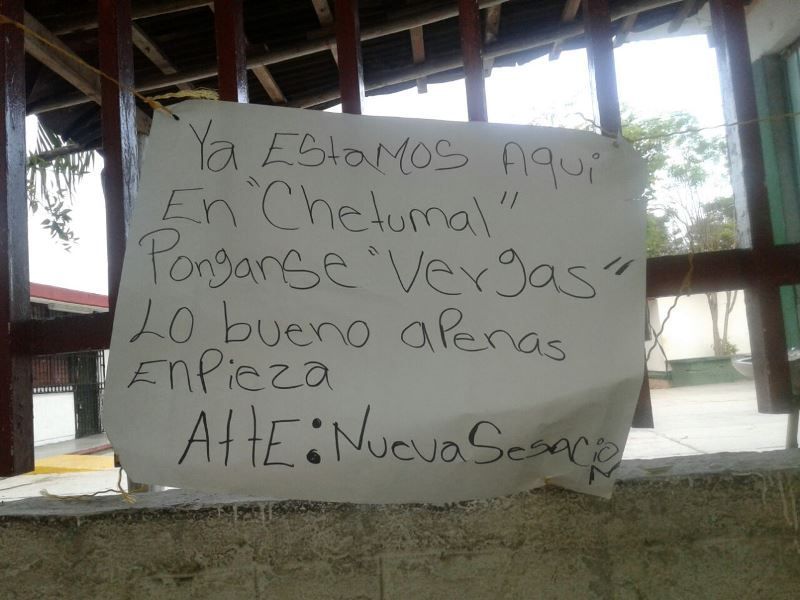 Ya EStaMOS Aqui
En "Chetumal"
PonganSE "Vergas"
LO bueno apenas
EnPieza
AttE: NuevaSesacion